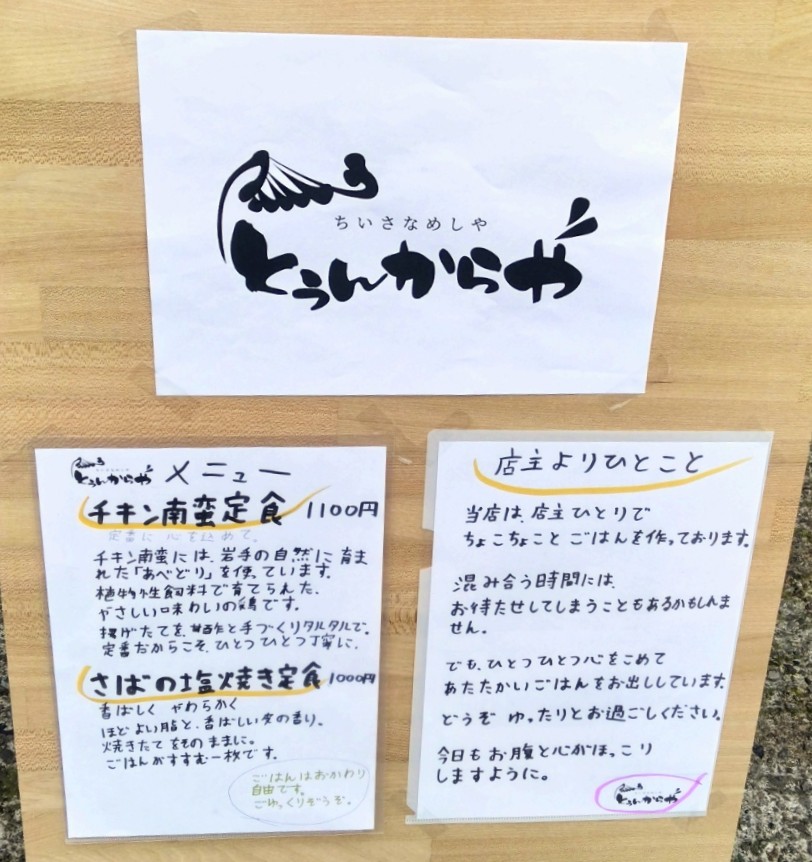 ちいさなめしや
とぅんからや
とぅんからや メニュー
チキン南蛮定食 1100円
定番に心を込めて。
チキン南蛮には、岩手の自然に育ま
れた「あべどり」を使っています。
植物性飼料で育てられた、
やさしい味わいの鶏です。
揚げたてを、甘酢と手づくりタルタルで。
定番だからこそ、ひとつひとつ丁寧に。
さばの塩焼き定食 1000円
香ばしく やわらかく
ほどよい脂と、香ばしい皮の香り。
焼きたてをそのままに。
ごはんがすすむ一枚です。
ごはんはおかわり
自由です。
ごゆっくりどうぞ。
店主よりひとこと
当店は、店主ひとりで
ちょこちょこと ごはんを作っております。
混み合う時間には、
お待たせしてしまうこともあるかもしれま
せん。
でも、ひとつひとつ心をこめて
あたたかいごはんをお出ししています。
どうぞ ゆったりとお過ごしください。
今日もお腹と心がほっこり
しますように。
とぅんからや